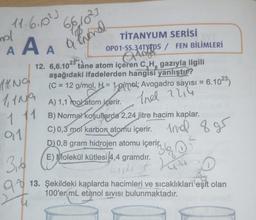 11.6.10²³
A A A
TİTANYUM SERİSİ
OP01-SS.34TYTDS / FEN BİLİMLERİ
12. 6,6.10²² tane atom içeren C₃H₈ gazıyla ilgili
aşağıdaki ifadelerden hangisi yanlıştır?
(C = 12 g/mol, H = 1 g/mol; Avogadro sayısı = 6.10²³)
A) 1,1 mol atom içerir.
B) Normal koşullarda 2,24 litre hacim kaplar.
C) 0,3 mol karbon atomu içerir.
D) 0,8 gram hidrojen atomu içerir.
E) Molekül kütlesi 4,4 gramdır.
13. Şekildeki kaplarda hacimleri ve sıcaklıkları eşit olan
100'er mL etanol sıvısı bulunmaktadır.